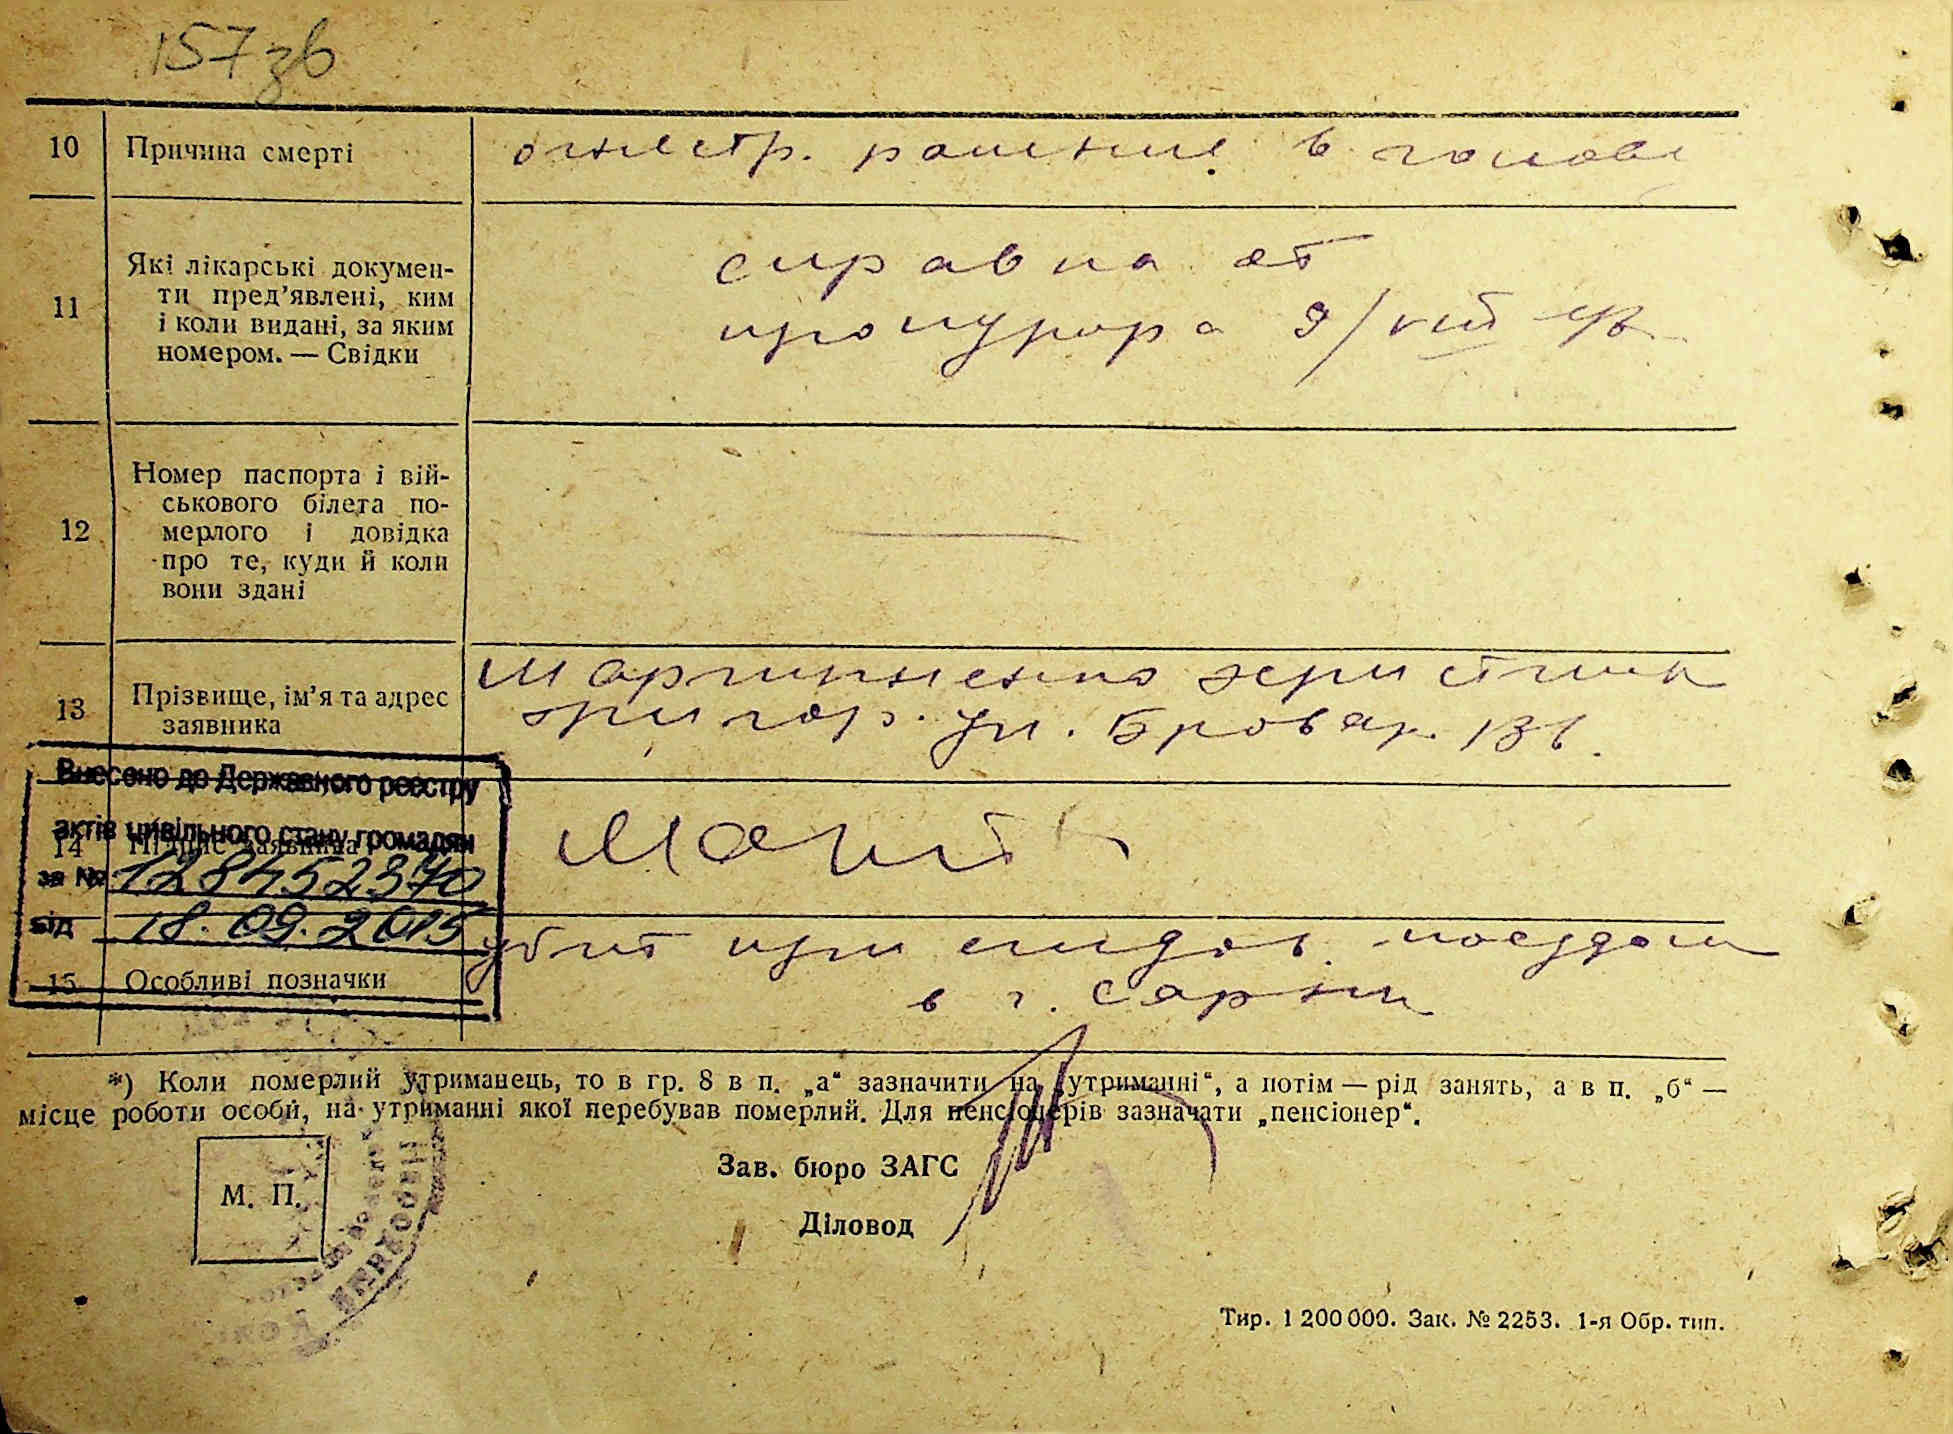 157 зв
10 Причина смерті огнестр. ранение в голову
11 Які лікарські докумен-
ти пред’явлені, ким
і коли видані, за яким
номером. — Свідки
справка от
прокурора 9/VIII
12 Номер паспорта і вій-
ськового білета по-
мерлого і довідка
про те, куди й коли
вони здані
—
13 Прізвище, ім’я та адрес
заявника
григор. ул. Бровар.
Внесено до Державного реєстру
актів цивільного стану громадян
за № 128452370
від 18.09.2015
14 Підпис заявника
15 Особливі позначки
убит при следов. поездом
в г. Сарны
*) Коли померлий утриманець, то в гр. 8 в п. „а“ зазначити „на утриманні“, а потім — рід занять, а в п. „б“ —
місце роботи особи, на утриманні якої перебував померлий. Для пенсіонерів зазначати „пенсіонер“.
М. П.
Зав. бюро ЗАГС
Діловод
Тир. 1 200 000. Зак. № 2253. 1-я Обр. тип.